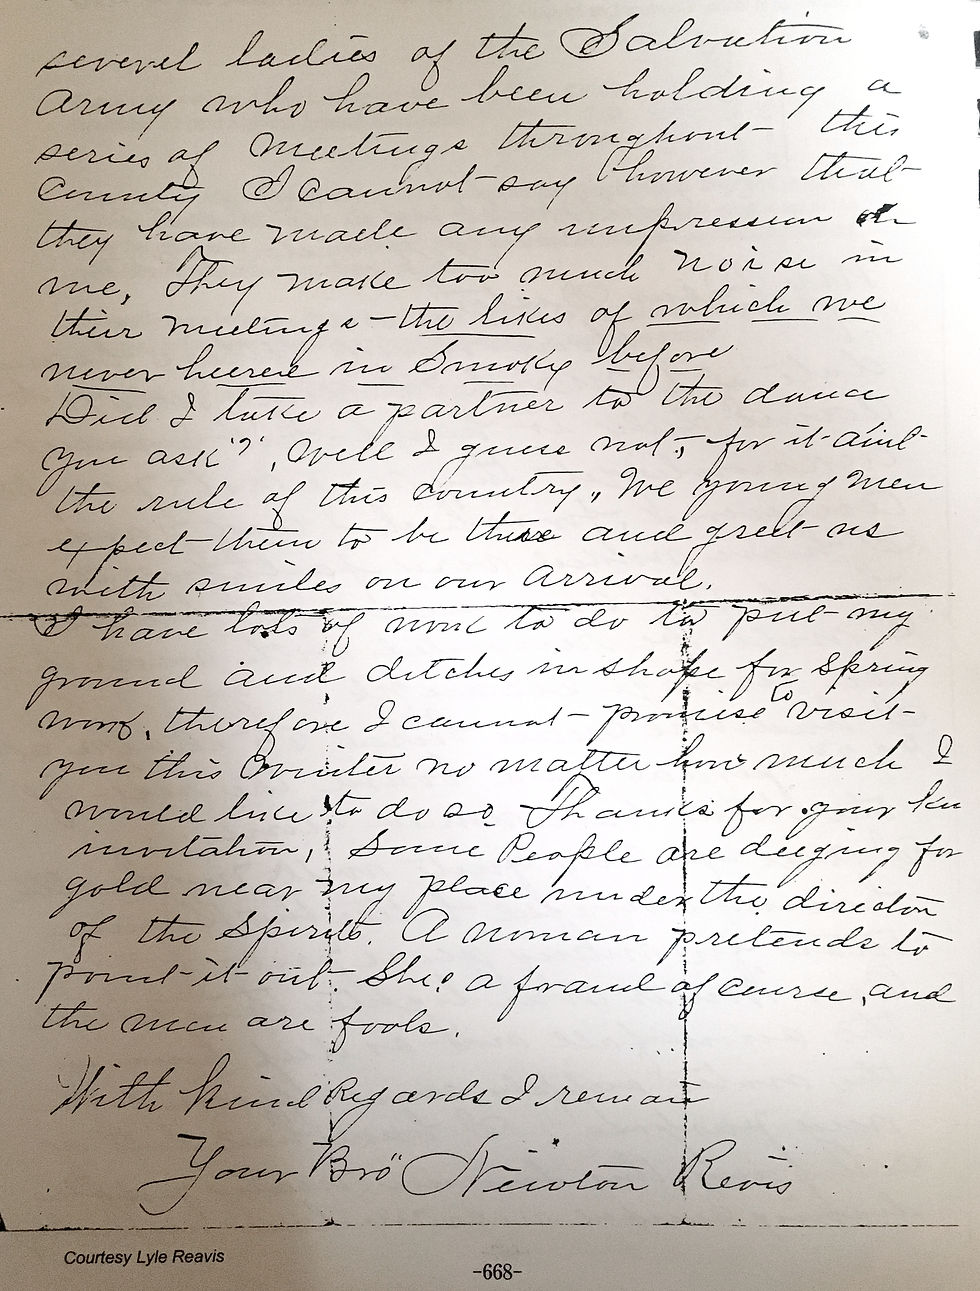 several ladies of the Salvation
Army who have been holding a
series of Meetings throughout this
County I cannot say however that
they have made any impression on
me, They make too much noise in
their meetings - the likes of which we
never heered in Smoky before
Did I take a partner to the dance
you ask"?", Well I guess not; for it aint
the rule of this country. We young Men
expect them to be there and greet us
with smiles on our Arrival.
I have lots of work to do to put my
ground and ditches in shape for Spring
work, therefore I cannot promise to visit
you this Winter no matter how much I
would like to do so. Thanks for your kin
invitation, Some People are deeging for
gold near my place under the direction
of the Spirits. A woman pretends to
point it out. She's a fraud of course, and
the men are fools.
With kind Regards I remain
Your Bro" Newton Revis
Courtesy Lyle Reavis
-668-